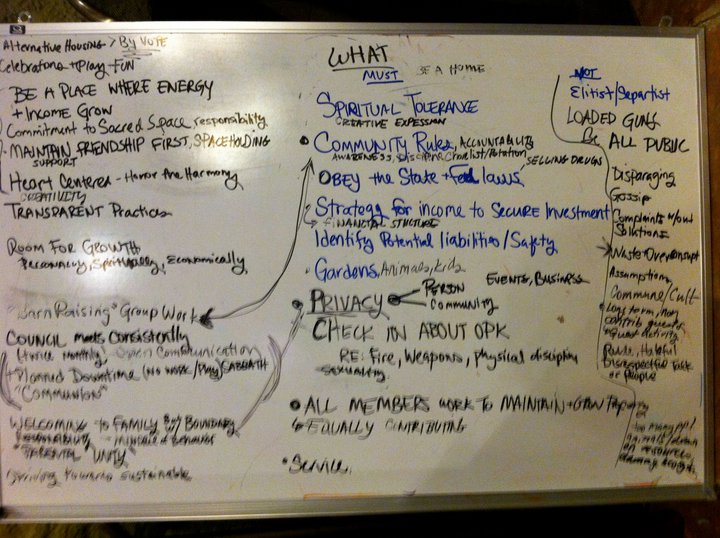 Alternative Housing > By Vote
Celebrations + Play + Fun
BE A PLACE WHERE ENERGY
+ Income Grow
Commitment to Sacred Space, responsibility
MAINTAIN FRIENDSHIP FIRST, SPACEHOLDING
SUPPORT
Heart Centered - Honor the Harmony
CREATIVITY
TRANSPARENT Practices
ROOM FOR GROWTH
Personally, Spiritually, Economically
"Barn Raising" Group Work
COUNCIL meets Consistently
(twice monthly) - Open Communication
+ Planned Downtime (NO WORK / Play) SABBATH
"COMMUNION"
WELCOMING to FAMILY Boundary
Behavior
PARENTAL UNITY
Striving towards sustainable
WHAT
MUST BE A HOME
SPIRITUAL TOLERANCE
CREATIVE EXPRESSION
Community Rules, ACCOUNTABILITY
AWARENESS, Discipline Chorelist/Rotation
SELLING DRUGS
OBEY the State + Fed laws
Strategy for income to SECURE Investment
FINANCIAL STRUCTURE
Identify Potential liabilities/Safety
Gardens, Animals, Kids
EVENTS, BUSINESS
PRIVACY PERSON
COMMUNITY
CHECK IN ABOUT OPK
RE: Fire, Weapons, Physical discipline
SEXUALITY
ALL MEMBERS WORK TO MAINTAIN + Grow Property
EQUALLY CONTRIBUTING
Service
NOT
Elitist/Separtist
LOADED GUNS
Be ALL PUBLIC
Disparaging
Gossip
Complaints w/out
Solutions
Waste/Overconsumpt
Assumptions
Commune/Cult
Long term, non
contrib guests
Rude, Hateful
Disrespectful Talk
or People
too many ppl/
animals/drain
on resources